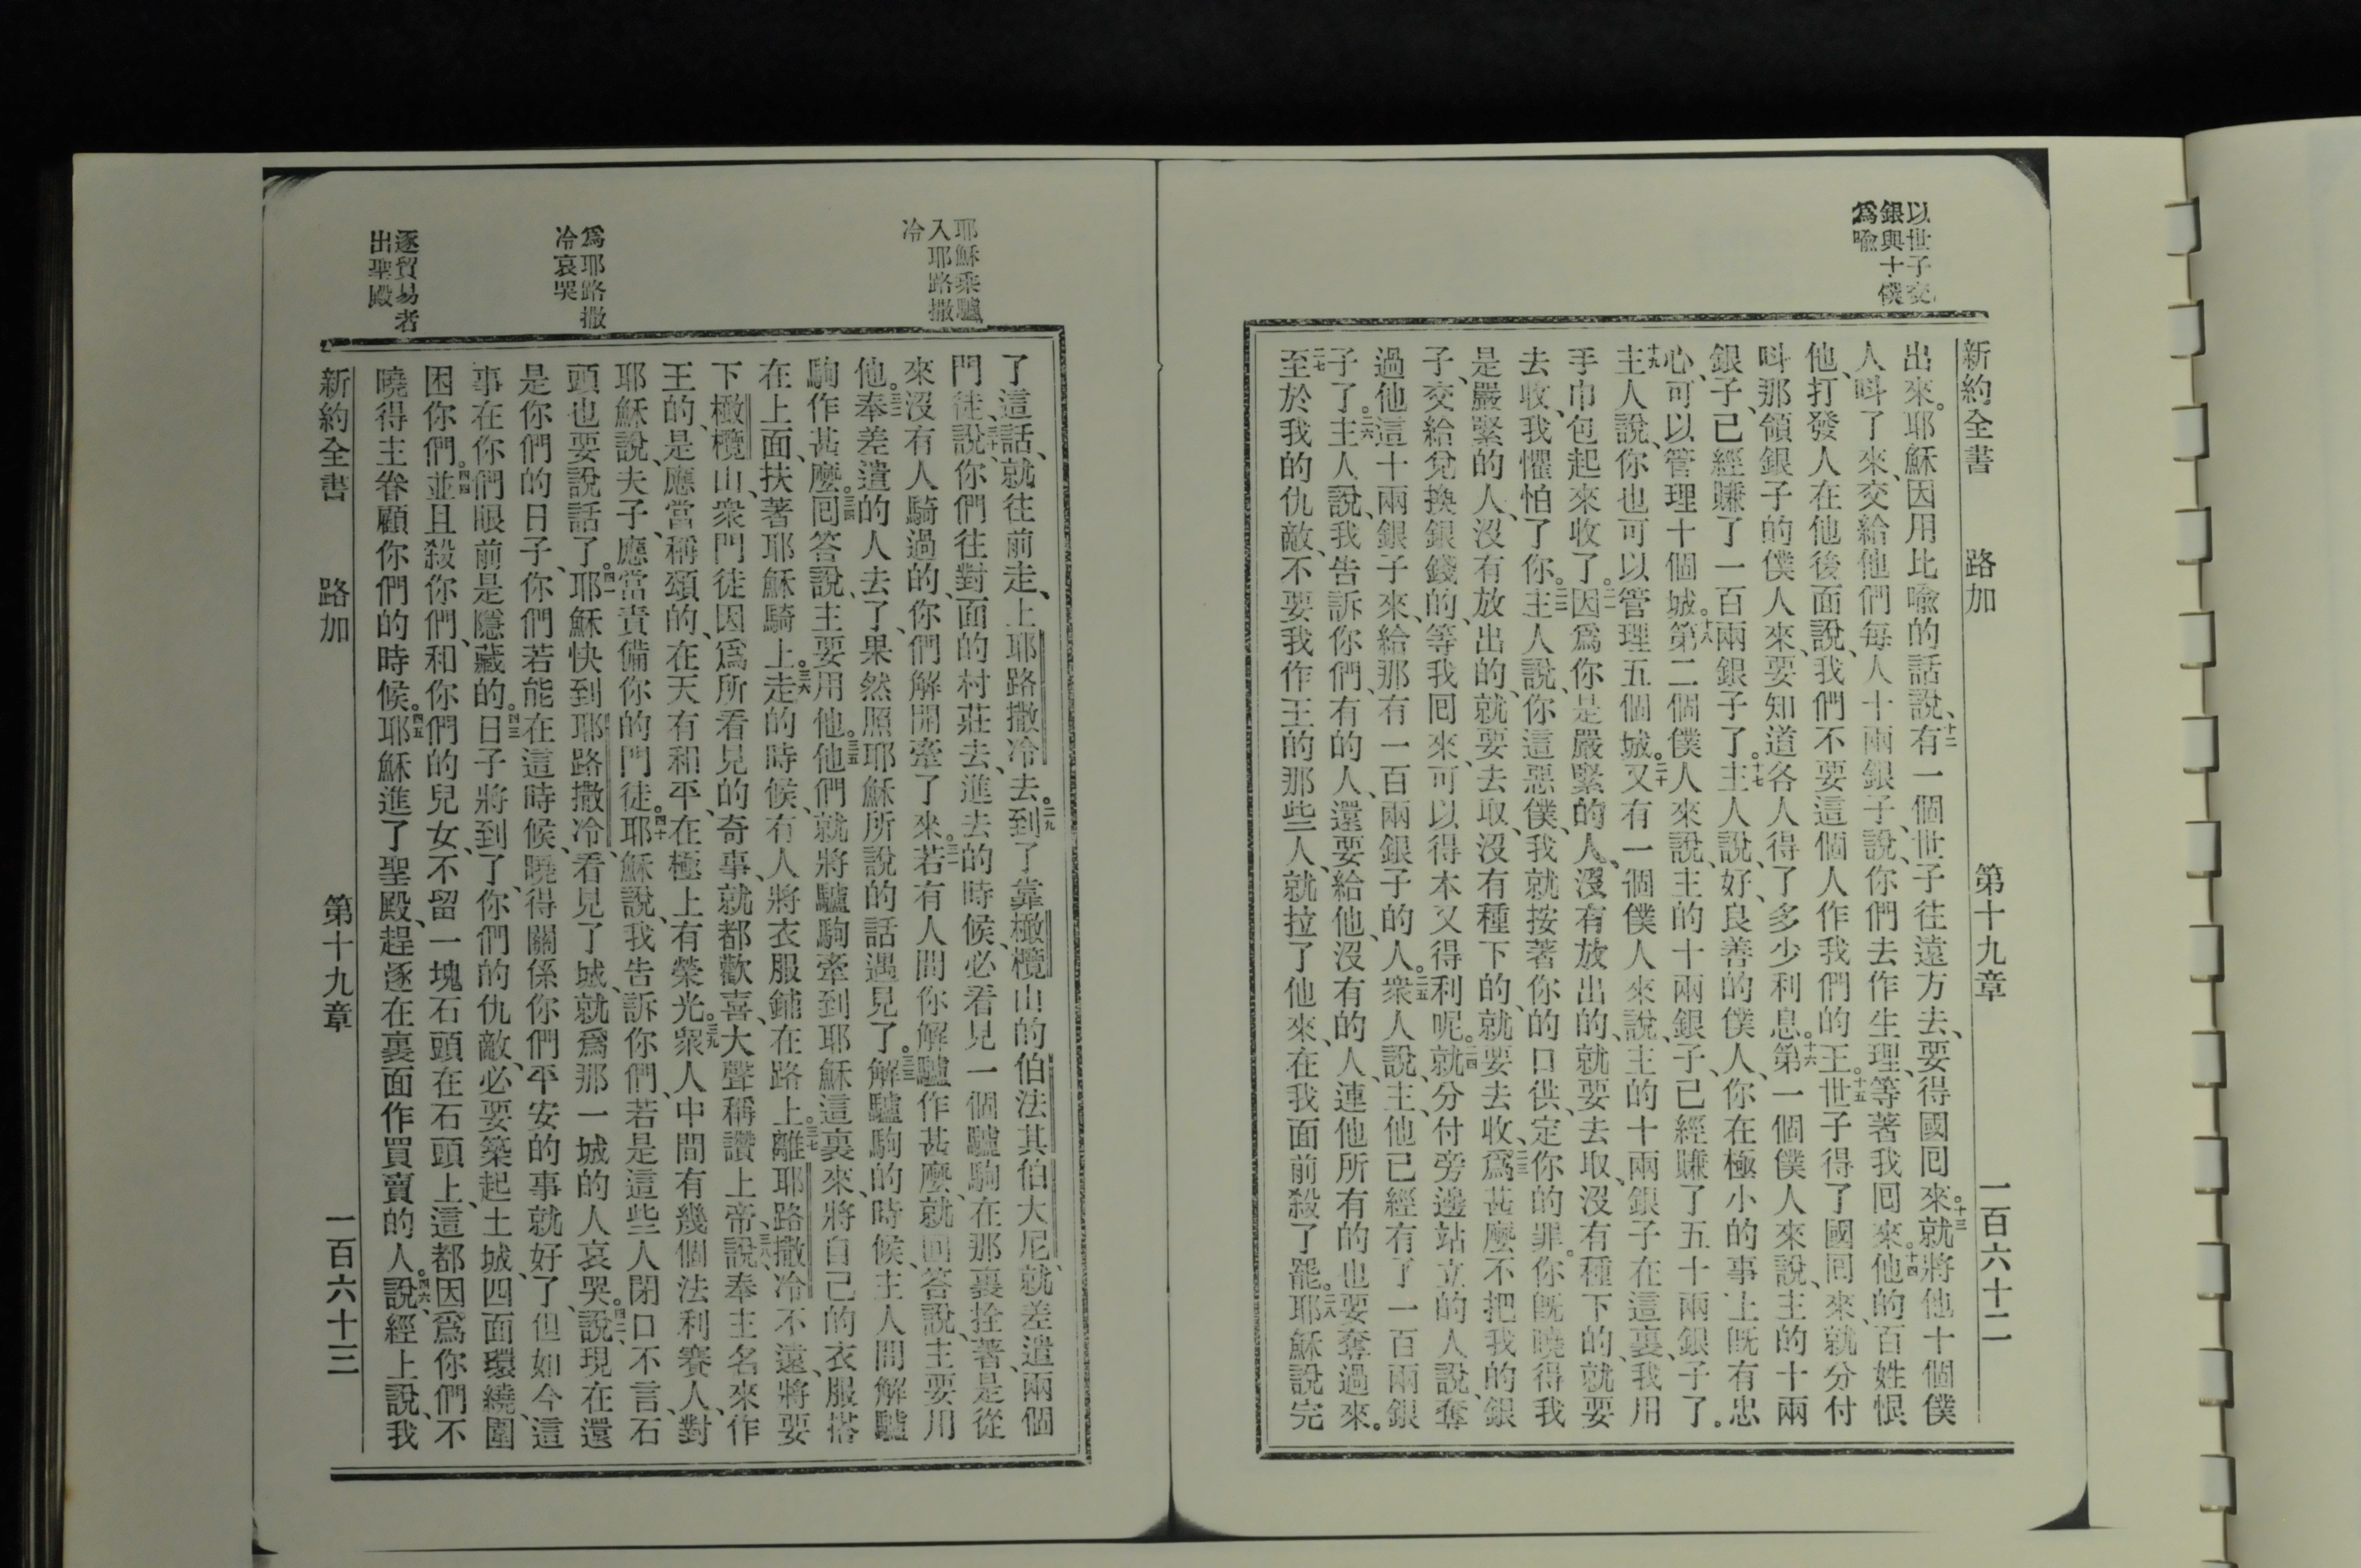 新約全書　路加　第十九章　一百六十二
以世子交
銀與十僕
爲喻
出來。耶穌因用比喻的話說、十二有一個世子往遠方去、要得國囘來。十三就將他十個僕
人呌了來、交給他們每人十兩銀子、說、你們去作生理、等著我囘來。十四他的百姓恨
他、打發人在他後面說、我們不要這個人作我們的王。十五世子得了國囘來、就分付
呌那領銀子的僕人來、要知道各人得了多少利息。十六第一個僕人來說、主的十兩
銀子、已經賺了一百兩銀子了。十七主人說、好、良善的僕人、你在極小的事上旣有忠
心、可以管理十個城。十八第二個僕人來說、主的十兩銀子、已經賺了五十兩銀子了。
十九主人說、你也可以管理五個城。二十又有一個僕人來說、主的十兩銀子在這裏、我用
手巾包起來收了。二一因爲你是嚴緊的人、沒有放出的、就要去取、沒有種下的、就要
去收、我懼怕了你。二二主人說、你這惡僕、我就按著你的口供、定你的罪。你旣曉得我
是嚴緊的人、沒有放出的、就要去取、沒有種下的、就要去收、二三爲甚麼不把我的銀
子、交給兌換銀錢的、等我囘來、可以得本又得利呢。二四就分付旁邊站立的人說、奪
過他這十兩銀子來、給那有一百兩銀子的人。二五衆人說、主、他已經有了一百兩銀
子了。二六主人說、我告訴你們、有的人、還要給他、沒有的人、連他所有的也要奪過來。
二七至於我的仇敵、不要我作王的那些人、就拉了他來、在我面前殺了罷。二八耶穌說完
耶穌乘驢
入耶路撒
冷
爲耶路撒
冷哀哭
逐貿易者
出聖殿
了這話、就往前走、上耶路撒冷去。二九到了靠橄欖山的伯法其伯大尼、就差遣兩個
門徒、三十說、你們往對面的村莊去、進去的時候、必看見一個驢駒在那裏拴著、是從
來沒有人騎過的、你們解開牽了來。三一若有人問你解驢作甚麼、就囘答說、主要用
他。三二奉差遣的人去了、果然照耶穌所說的話遇見了。三三解驢駒的時候、主人問解驢
駒作甚麼。三四囘答說、主要用他。三五他們就將驢駒牽到耶穌這裏來、將自己的衣服搭
在上面、扶著耶穌騎上。三六走的時候、有人將衣服鋪在路上。三七離耶路撒冷不遠、將要
下橄欖山、衆門徒因爲所看見的奇事、就都歡喜、大聲稱讚上帝、三八說、奉主名來作
王的、是應當稱頌的、在天有和平、在極上有榮光。三九衆人中間有幾個法利賽人、對
耶穌說、夫子、應當責備你的門徒。四十耶穌說、我告訴你們、若是這些人閉口不言、石
頭也要說話了。四一耶穌快到耶路撒冷、看見了城、就爲那一城的人哀哭、四二說、現在還
是你們的日子、你們若能在這時候、曉得關係你們平安的事就好了、但如今這
事在你們眼前是隱藏的。四三日子將到了、你們的仇敵、必要築起土城、四面環繞、圍
困你們。四四並且殺你們、和你們的兒女、不留一塊石頭在石頭上、這都因爲你們不
曉得主眷顧你們的時候。四五耶穌進了聖殿、趕逐在裏面作買賣的人。四六說、經上說、我
新約全書　路加　第十九章　一百六十三